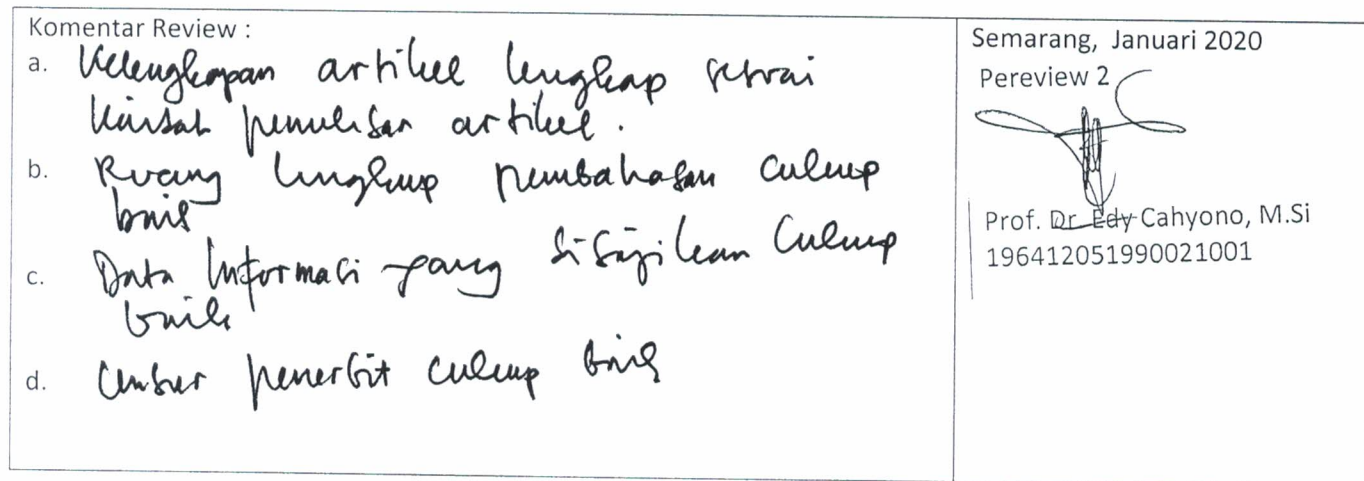 Komentar Review :
a. Kelengkapan artikel lengkap sesuai
kaidah penulisan artikel.
b. Ruang lingkup pembahasan cukup
baik
c. Data Informasi yang disajikan cukup
baik
d. Unsur penerbit cukup baik
Semarang, Januari 2020
Pereview 2
Prof. Dr. Edy Cahyono, M.Si
196412051990021001